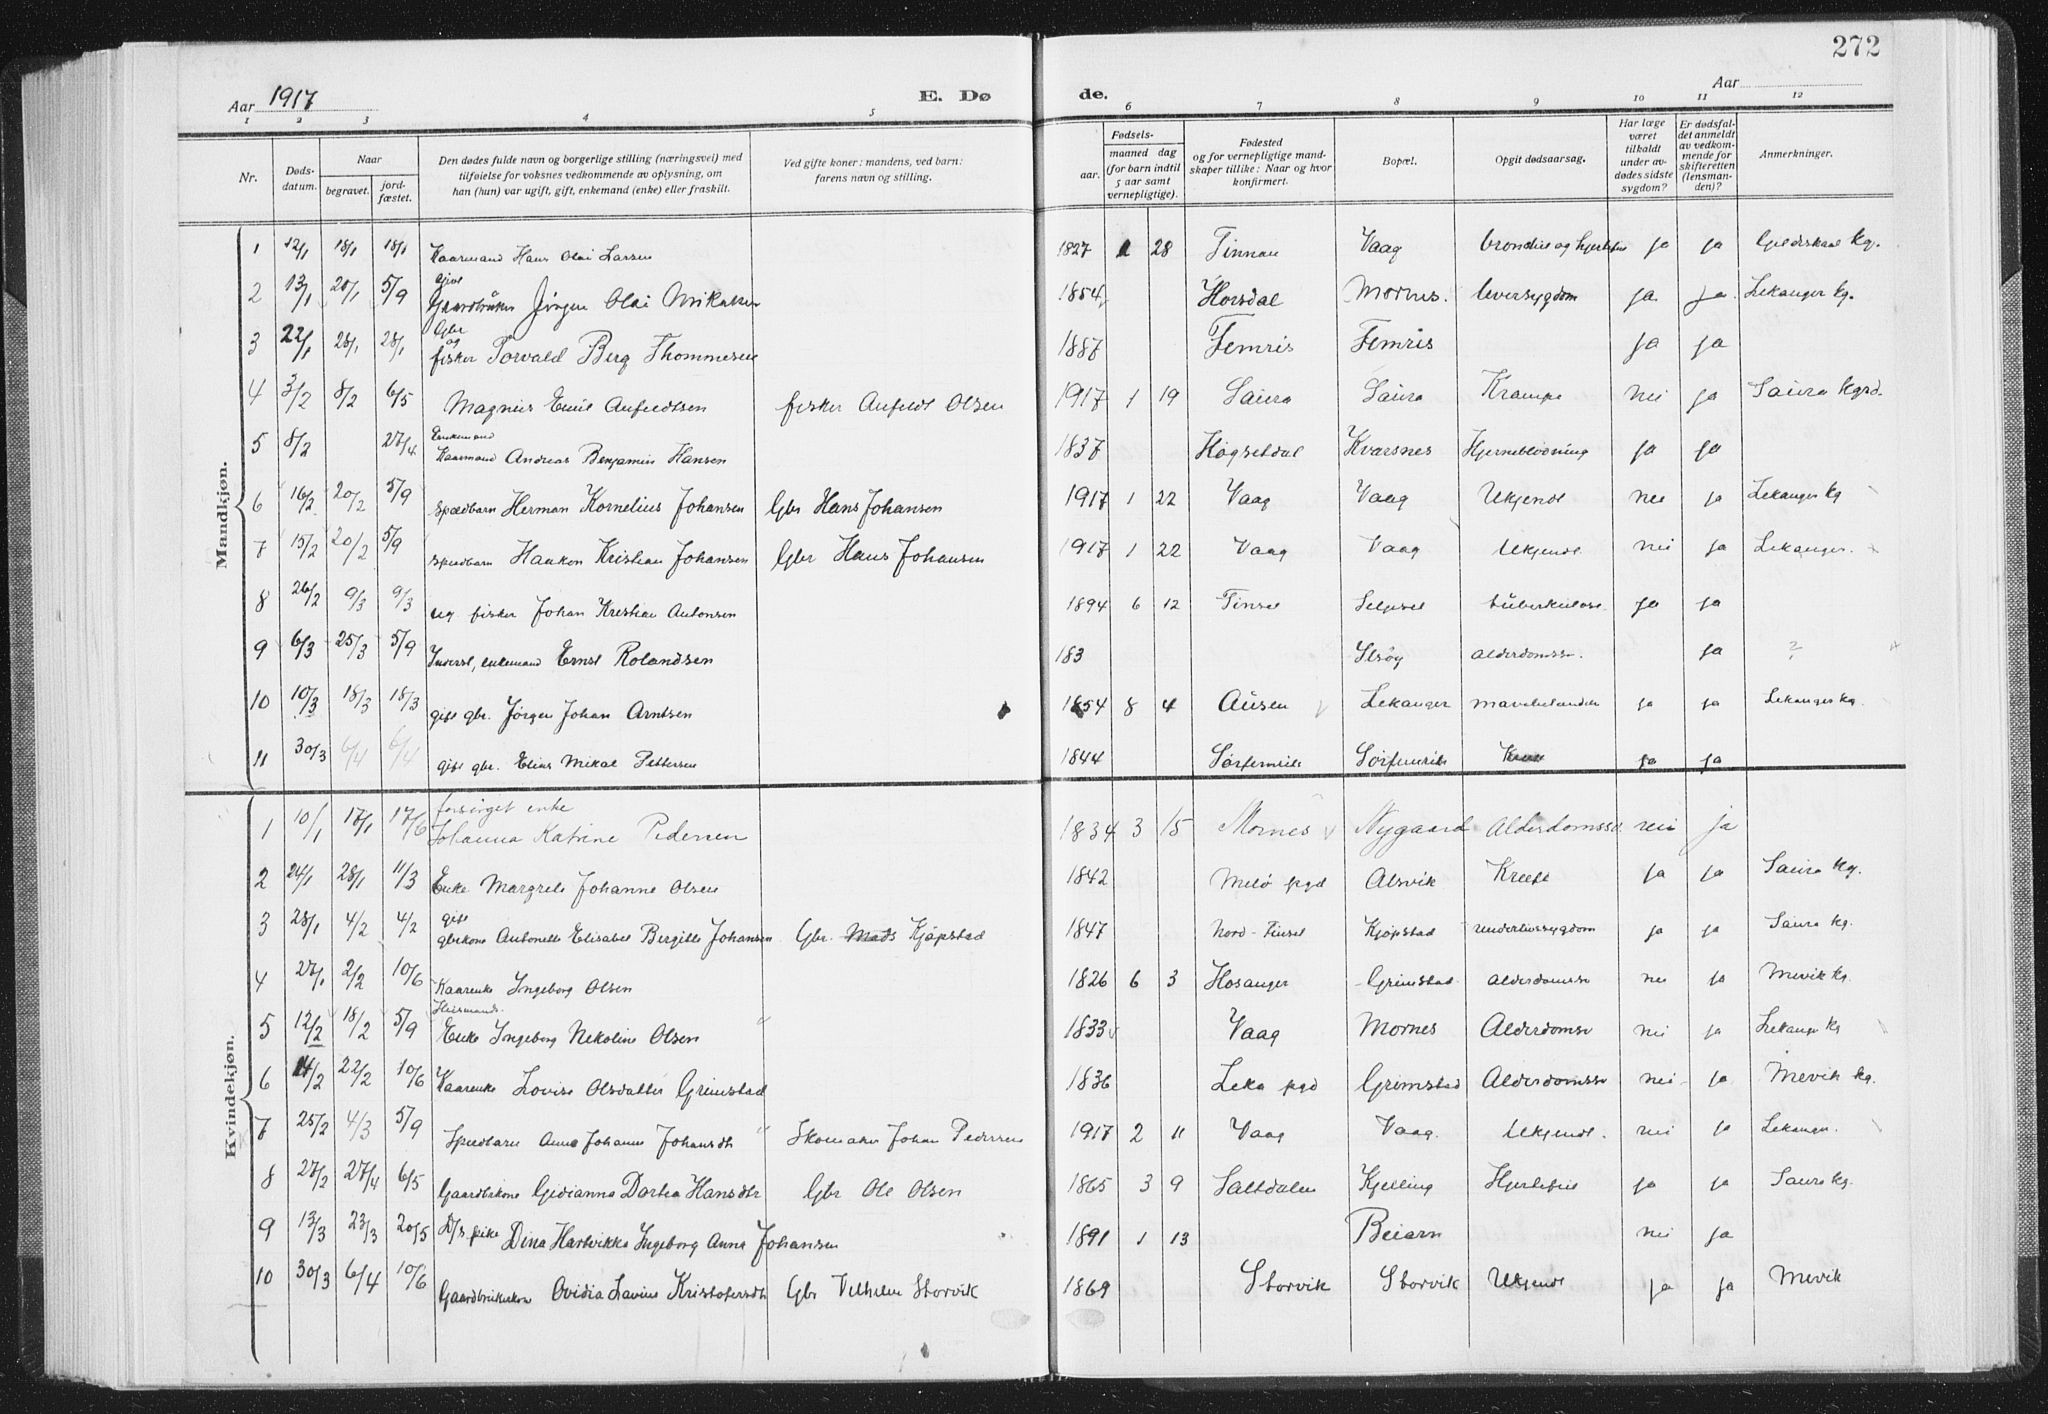 272
Aar 1917
E. Dø
de.
Aar
1 2 3 4 5 6 7 8 9 10 11 12
Nr.
Døds-
datum.
Naar
begravet.
jord-
fæstet.
Den dødes fulde navn og borgerlige stilling (næringsvei) med
tilføielse for voksnes vedkommende av oplysning, om
han (hun) var ugift, gift, enkemand (enke) eller fraskilt.
Ved gifte koner: mandens, ved barn:
farens navn og stilling.
Fødsels-
aar.
maaned dag
(for barn indtil
5 aar samt
vernepligtige).
Fødested
og for vernepligtige mand-
skaper tillike: Naar og hvor
konfirmert.
Bopæl.
Opgit dødsaarsag.
Har læge
været
tilkaldt
under av-
dødes sidste
sygdom?
Er dødsfal-
det anmeldt
av vedkom-
mende for
skifteretten
(lensman-
den)?
Anmerkninger.
Mandkjøn.
1 12/1 18/1 18/1 Kaarmand Hans Olai Larsen 1827 1 28 Tinnan Vaag ja ja Gildeskaal kg.
2 13/1 20/1 5/9 Gift Gaardbruker Jørgen Olai Mikalsen 1854 Horsdal Mornes. leversygdom ja ja Lekanger kg.
3 22/1 28/1 28/1 Gbr og fisker Torvald Berg Thommesen 1887 Femris Femris ja ja
4 3/2 8/2 6/5 Magnus Emil Anfeldtsen fisker Anfeldt Olsen 1917 1 19 Saura Saura Krampe nei ja Saura kgrd.
5 8/2 27/4 Enkemand Kaarmand Andreas Benjamin Hansen 1837 Høgsetdal Kvarsnes Hjerneblødning ja ja
6 16/2 20/2 5/9 spædbarn Herman Kornelius Johansen Gbr Hans Johansen 1917 1 22 Vaag Vaag Ukjendt nei ja Lekanger kg
7 15/2 20/2 5/9 spædbarn Haakon Kristian Johansen Gbr Hans Johansen 1917 1 22 Vaag Vaag Ukjendt nei ja Lekanger.
8 26/2 9/3 9/3 ug. fisker Johan Kristian Antonsen 1894 6 12 Finset Selsset tuberkulose ja ja
9 6/3 25/3 5/9 Inderst, enkemand Ernst Rolandsen 183 alderdomssv. ja ?
10 10/3 18/3 18/3 gift gbr. Jørgen Johan Arntsen 1854 8 4 Ausen Lekanger ja ja Lekanger kg.
11 30/3 6/4 6/4 gift gbr. Elias Mikal Pettersen 1844 Sørfemris Sørfemris ja ja
Kvindekjøn.
1 10/1 17/1 17/6 forsørget enke Johanna Katrine Pedersen 1834 3 15 Mornes Nygaard Alderdomssv. nei ja
2 24/1 28/1 11/3 Enke Margrete Johanne Olsen 1842 Melø pgd Alsvik Kræft ja ja Saura kg.
3 28/1 4/2 4/2 gift gbrkone Antonette Elisabet Bergitte Johansen Gbr. Mads Kjøpstad 1847 Nord-Finset Kjøpstad Underlivssygdom ja ja Saura kg.
4 27/1 2/2 10/6 Kaarenke Ingeborg Olsen 1826 6 3 Hosanger Grimstad Alderdomssv nei ja Mevik kg.
5 12/2 18/2 5/9 Husmands. Enke Ingeborg Nikoline Olsen 1833 Vaag Mornes Alderdomsv nei ja Lekanger kg
6 14/2 22/2 10/6 Kaarenke Lovise Olsdatter Grimstad 1836 Leka pgd Grimstad Alderdomssv nei ja Mevik kg.
7 25/2 4/3 5/9 Spædbarn Anna Johanna Johansdtr Skomaker Johan Pedersen 1917 2 11 Vaag Vaag. Ukjendt. nei ja Lekanger.
8 27/2 27/4 6/5 Gaardbrkone Gidianna Dortea Hansdtr Gbr Ole Olsen 1865 3 9 Saltdalen Kjelling Hjertefeil ja ja Saura kg.
9 13/3 23/3 20/5 D/s pike Dina Hartvikka Ingeborg Anna Johansen 1891 1 13 Beiarn nei ja
10 30/3 6/4 10/6 Gaardbrukerkone Ovidia Lavine Kristofersdtr Gbr Vilhelm Storvik 1869 Storvik Storvik Ukjendt ja ja Mevik